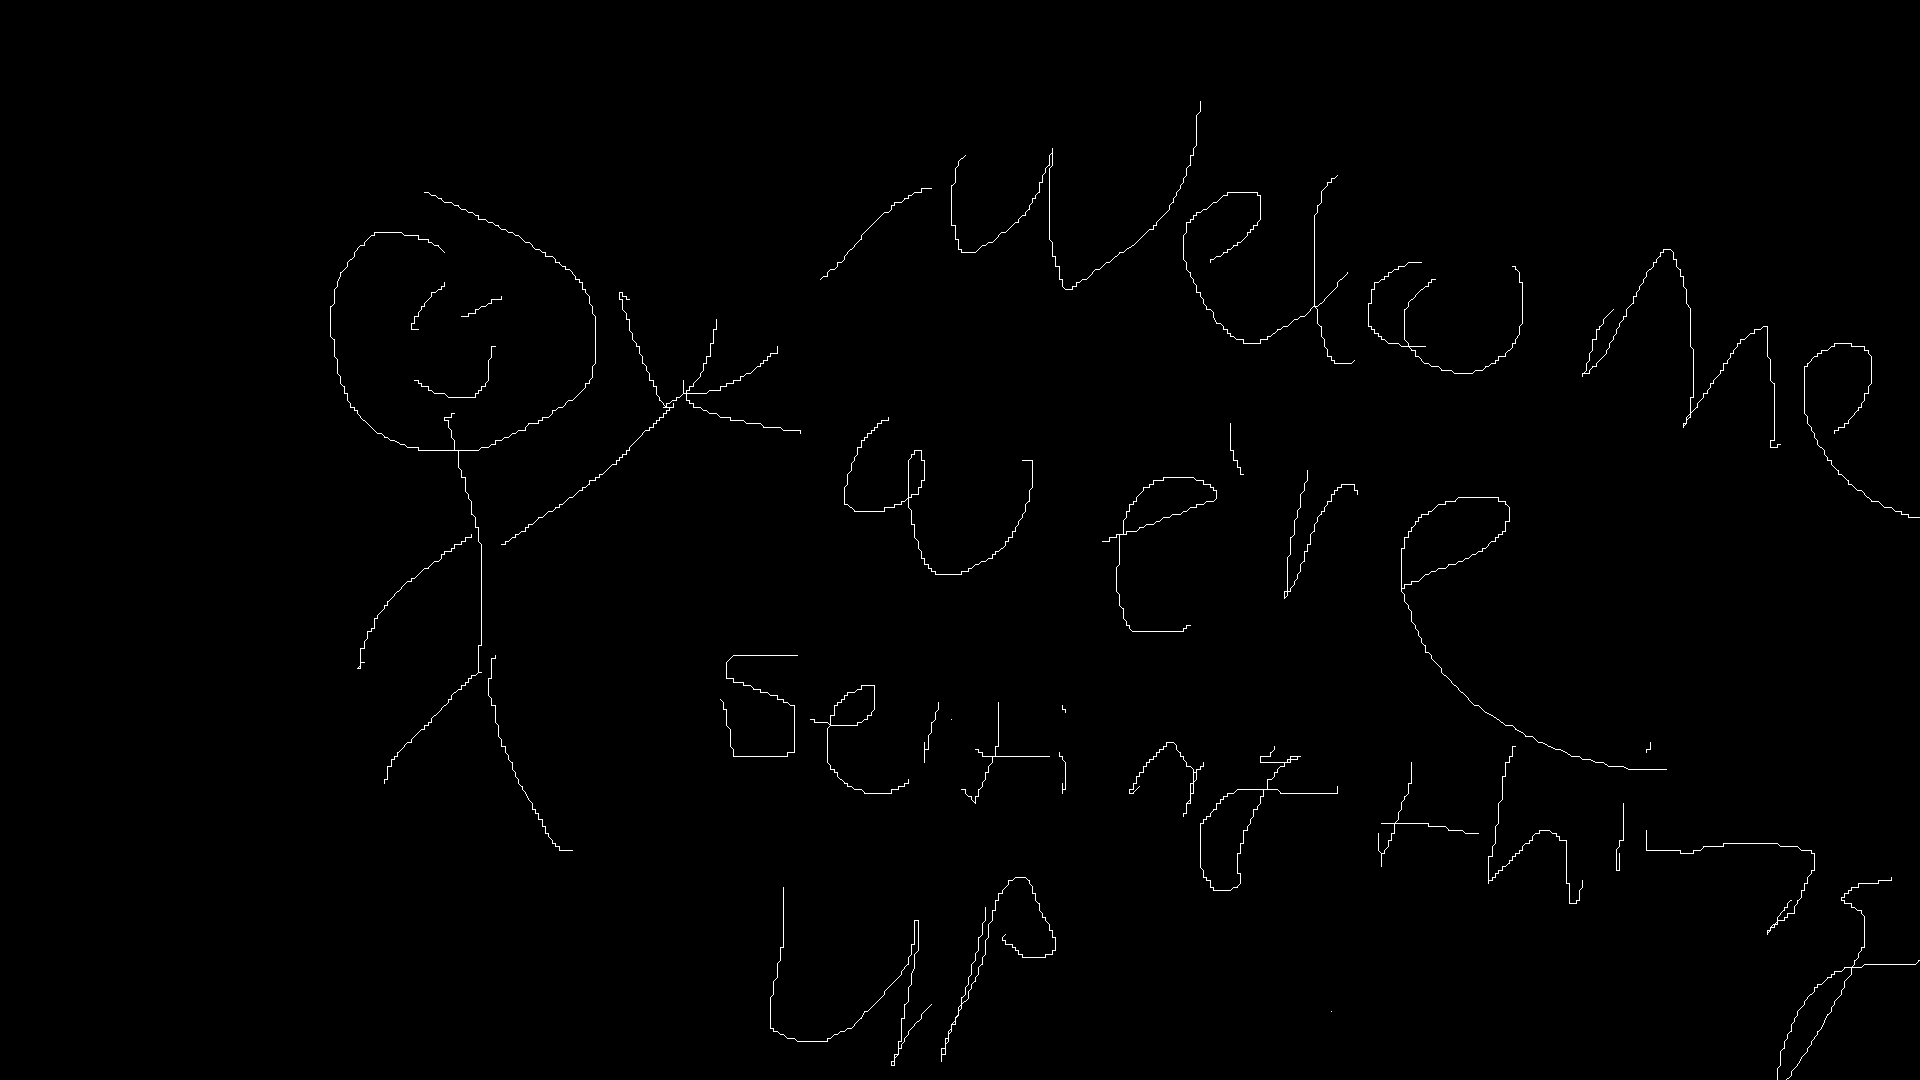 Welcome
we're
setting things
up